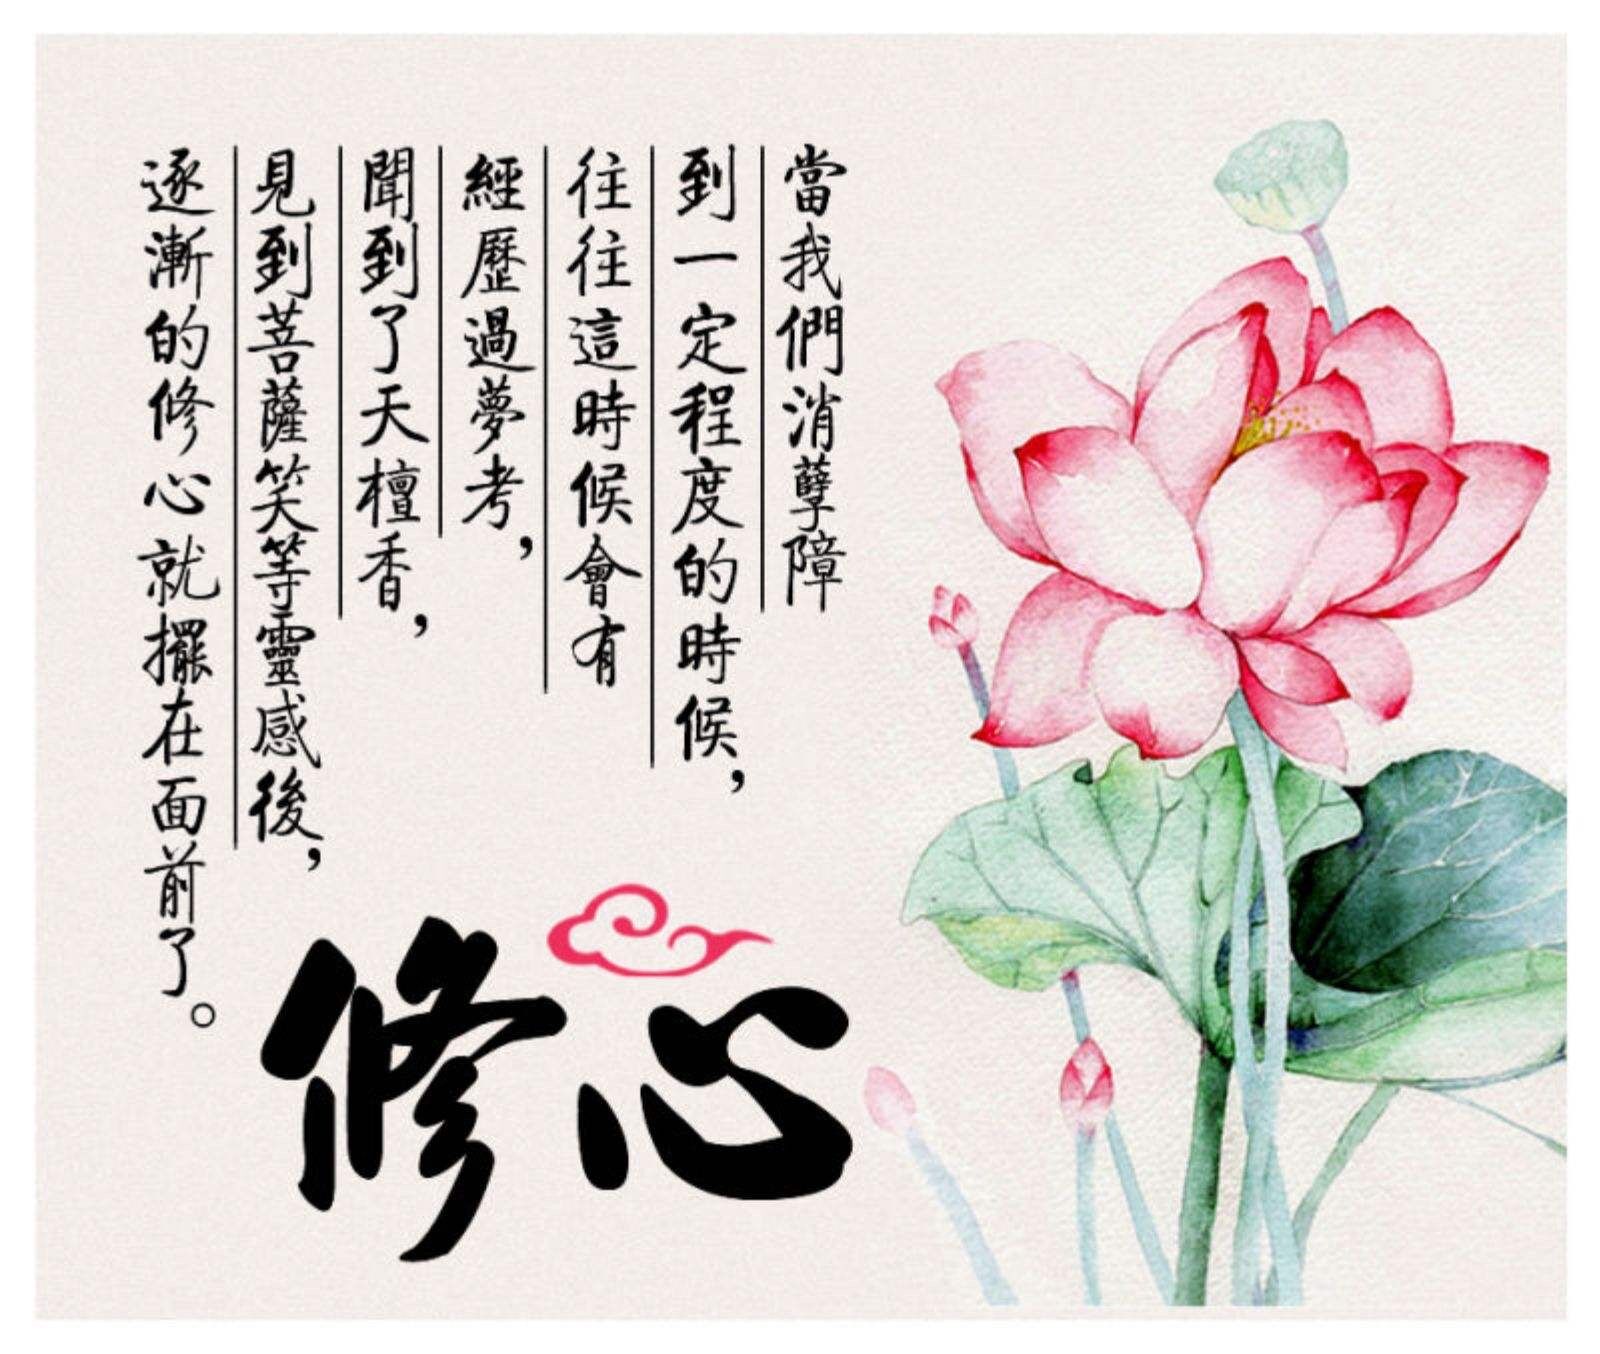 當我們消孽障
到一定程度的時候，
往往這時候會有
經歷過夢考，
聞到了天檀香，
見到菩薩笑等靈感後，
逐漸的修心就擺在面前了。
修心